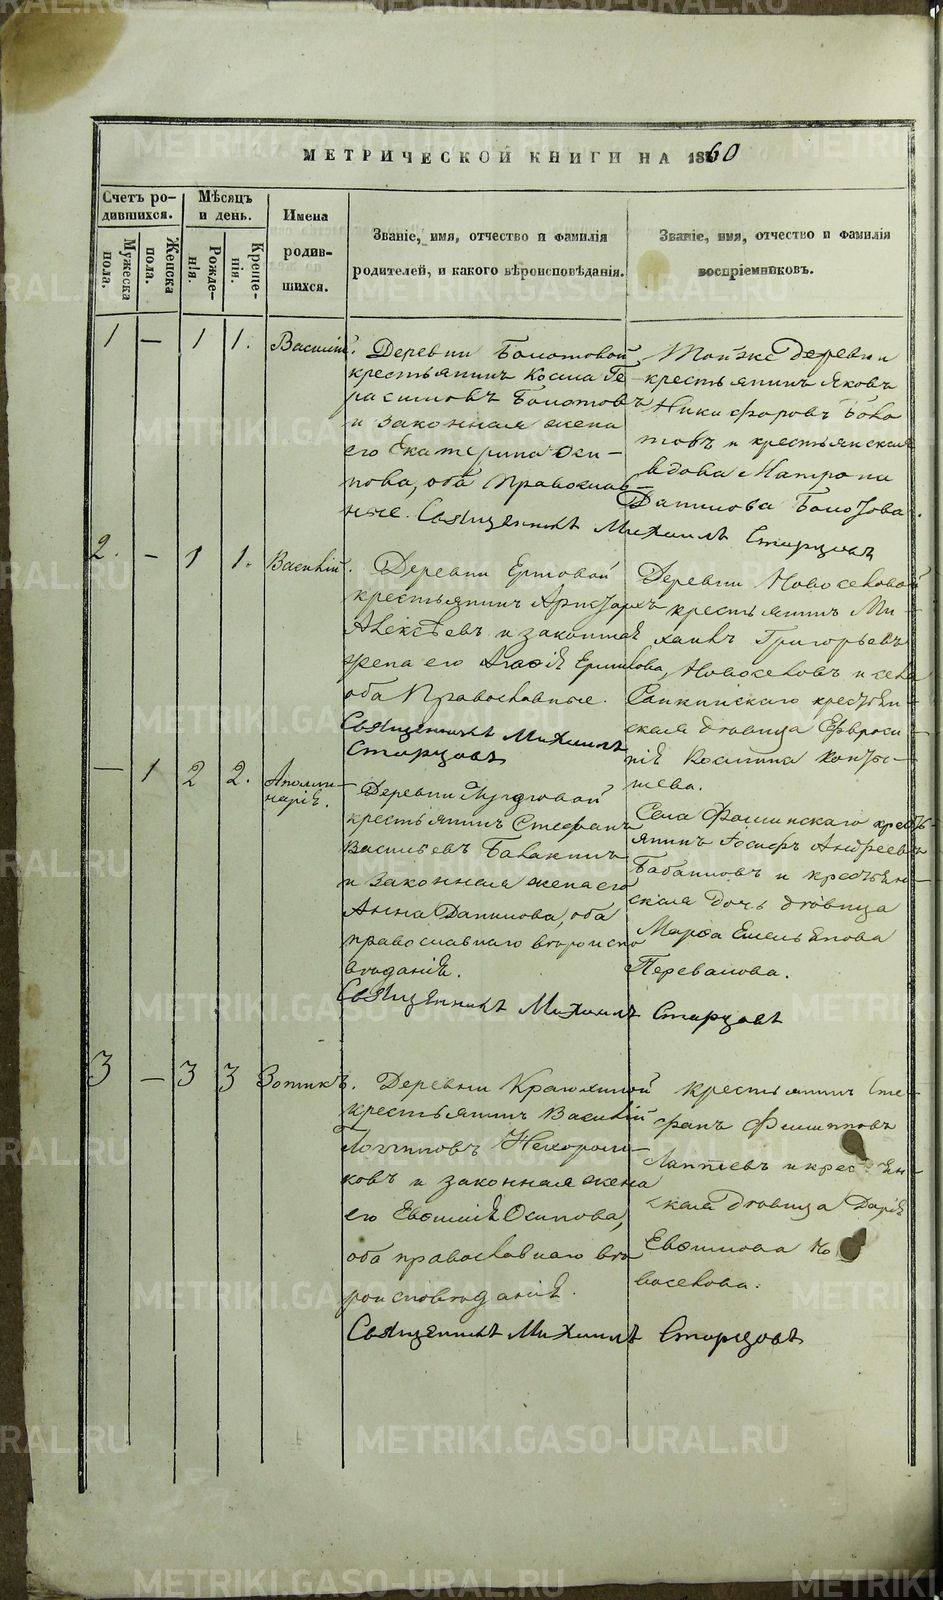 МЕТРИЧЕСКОЙ КНИГИ НА 1860
Счетъ ро-
дившихся.
Мужеска
пола.
Женска
пола.
Мѣсяцъ
и день.
Рожде-
нія.
Креще-
нія.
Имена
родив-
шихся.
Званіе, имя, отчество и фамилія
родителей, и какого вѣроисповѣданія.
Званіе, имя, отчество и фамилія
воспріемниковъ.
1 — 1 1. Василій.
Деревни Болотовой
крестьянинъ Косма Ге-
расимовъ Болотовъ
и законная жена
его Екатерина Оси-
пова, оба Православ-
ные.
Тойже Деревни
крестьянинъ Яковъ
Никифоровъ Боло
товъ и крестьянская
вдова Матрона
Данилова Болотова.
Священникъ Михаилъ Старцовъ
2. — 1 1. Василій.
Деревни Ертовой
крестьянинъ Аристархъ
Алексѣевъ и законная
жена его Агафія
оба Православные.
Священникъ Михаилъ
Старцовъ
Деревни Новоселовой
крестьянинъ Ми-
хаилъ Григорьевъ
Новоселовъ и села
крестьян-
ская дѣвица Евфроси
нія Космина
— 1 2 2. Аполли-
нарія.
Деревни
крестьянинъ Стефанъ
Васильевъ Балакинъ
и законная жена его
Анна Данилова, оба
православнаго вѣроиспо
вѣданія.
Села Фоминскаго кресть
янинъ Іосифъ Андреевъ
и крестьян-
ская дочь дѣвица
Марфа Емельянова
Перевалова.
Священникъ Михаилъ Старцовъ
3 — 3 3 Зотикъ.
Деревни
крестьянинъ Василій
Логгиновъ Нехорош-
ковъ и законная жена
его Евфимія Осипова,
оба православнаго вѣ
роисповѣданія.
крестьянинъ Сте-
фанъ Филипповъ
Лаптевъ и крестьян-
ская дѣвица Дарія
Евфимова Но
воселова.
Священникъ Михаилъ Старцовъ
METRIKI.GASO-URAL.RU